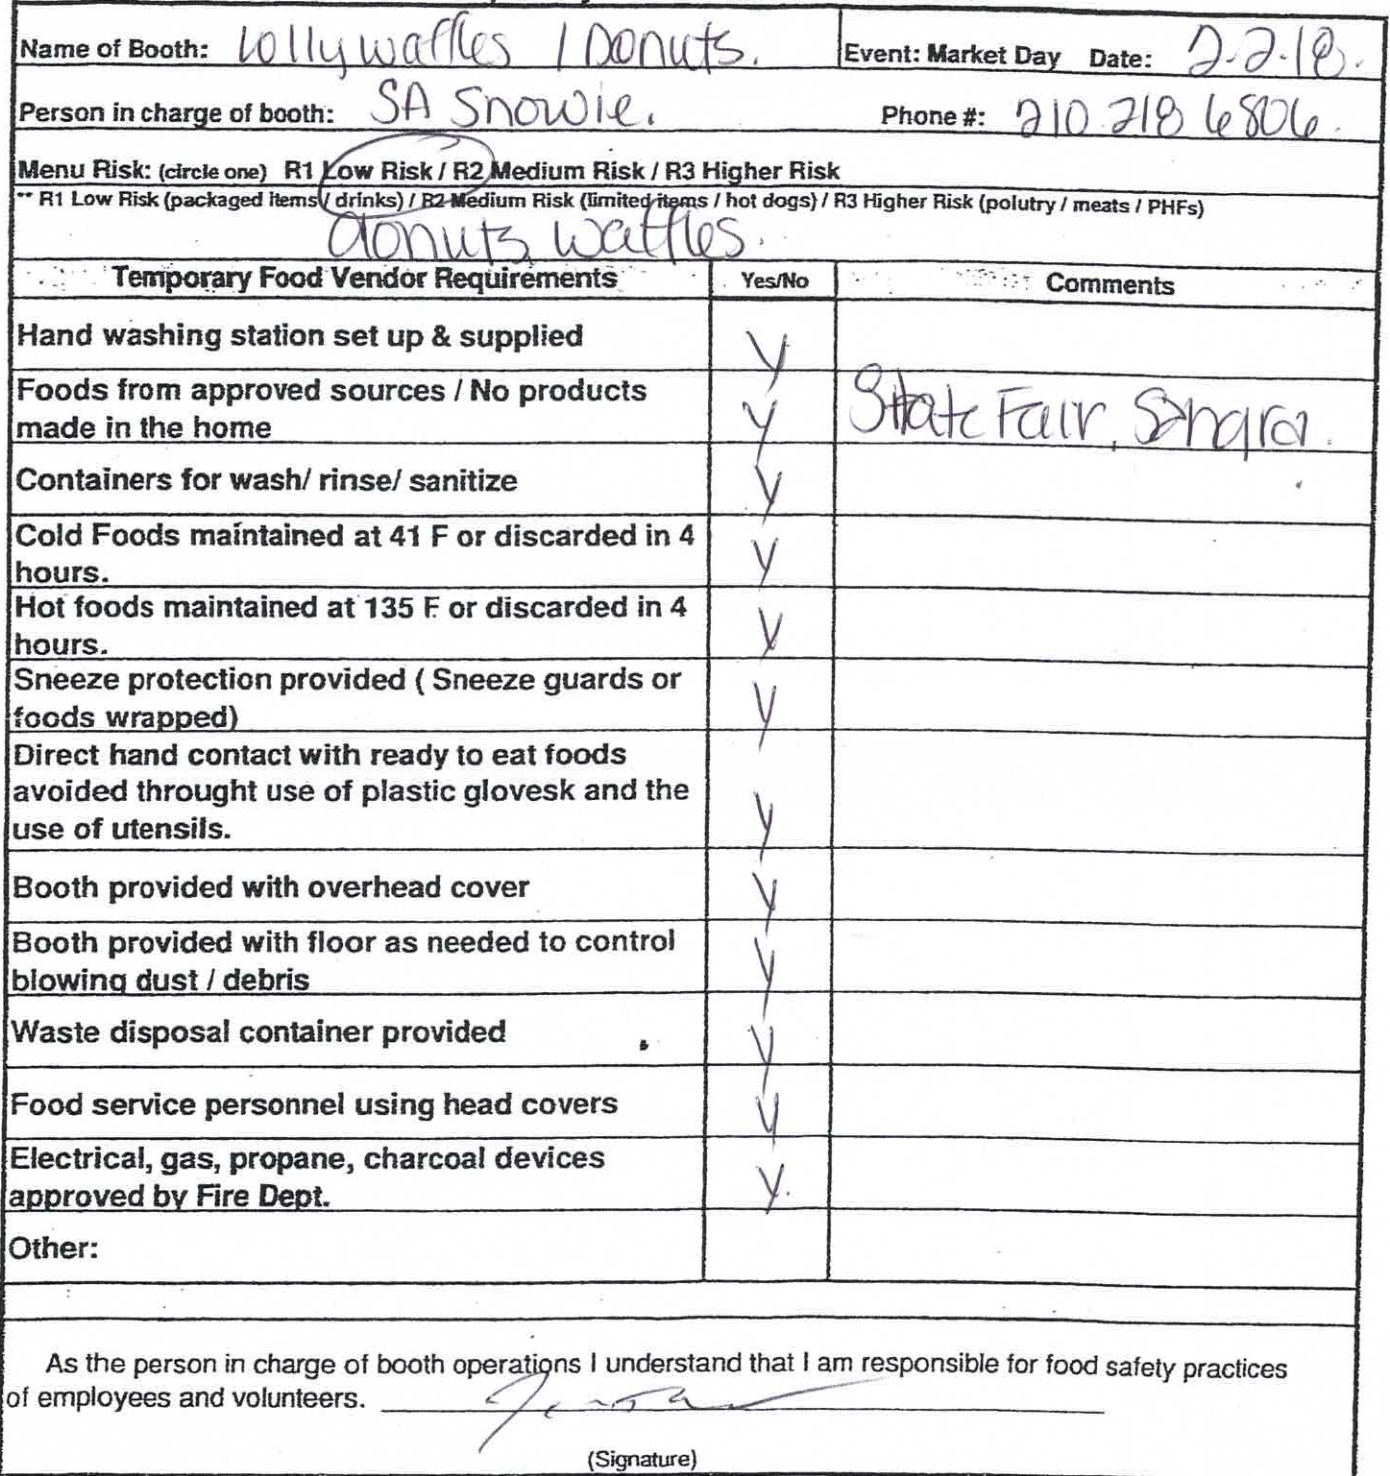 Name of Booth: Lollywaffles / Donuts. Event: Market Day Date: 2-2-18.
Person in charge of booth: SA Snowie. Phone #: 210 218 6806.
Menu Risk: (circle one) R1 Low Risk / R2 Medium Risk / R3 Higher Risk
** R1 Low Risk (packaged items / drinks) / R2 Medium Risk (limited items / hot dogs) / R3 Higher Risk (polutry / meats / PHFs)
donuts, waffles.
Temporary Food Vendor Requirements Yes/No Comments
Hand washing station set up & supplied Y
Foods from approved sources / No products
made in the home Y State Fair,
Containers for wash/ rinse/ sanitize Y
Cold Foods maintained at 41 F or discarded in 4
hours. Y
Hot foods maintained at 135 F or discarded in 4
hours. Y
Sneeze protection provided ( Sneeze guards or
foods wrapped) Y
Direct hand contact with ready to eat foods
avoided throught use of plastic glovesk and the
use of utensils. Y
Booth provided with overhead cover Y
Booth provided with floor as needed to control
blowing dust / debris Y
Waste disposal container provided Y
Food service personnel using head covers Y
Electrical, gas, propane, charcoal devices
approved by Fire Dept. Y.
Other:
As the person in charge of booth operations I understand that I am responsible for food safety practices
of employees and volunteers.
(Signature)